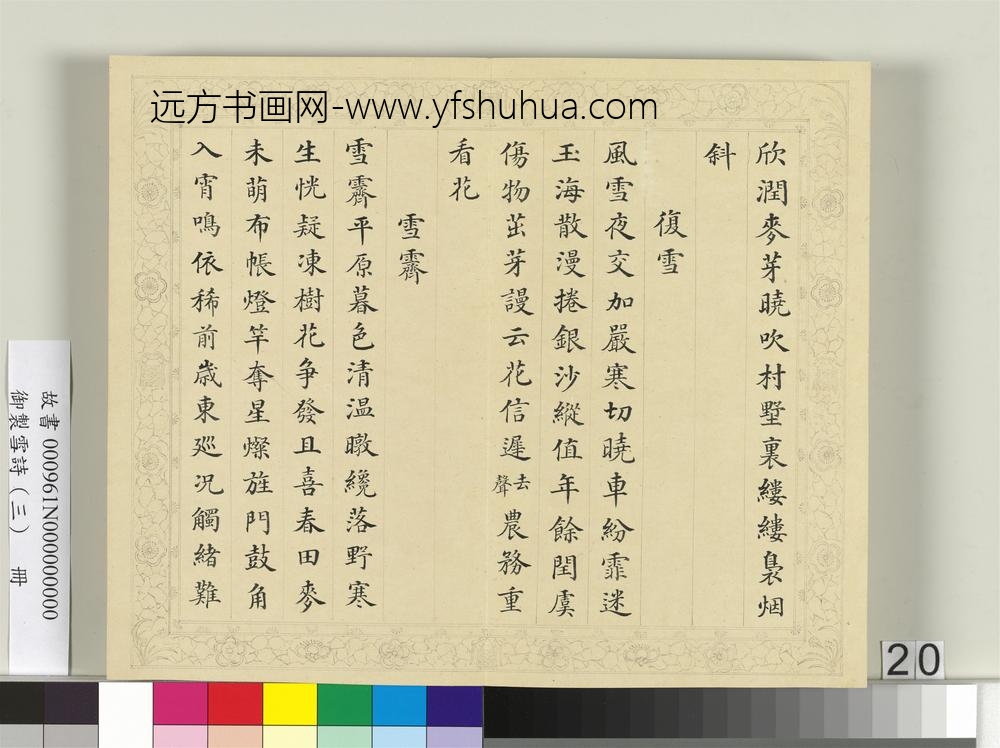 远方书画网-www.yfshuhua.com
欣潤麥芽曉吹村墅裏縷縷裊烟
斜
復雪
風雪夜交加嚴寒切曉車紛霏迷
玉海散漫捲銀沙縱值年餘閏虞
傷物茁芽謾云花信遲去聲農務重
看花
雪霽
雪霽平原暮色清温暾纔落野寒
生恍疑凍樹花争發且喜春田麥
未萌布帳燈竿奪星燦旌門鼓角
入宵鳴依稀前歲東廵况觸緒難
故書 000961N000000000
御製雪詩（三） 冊
20